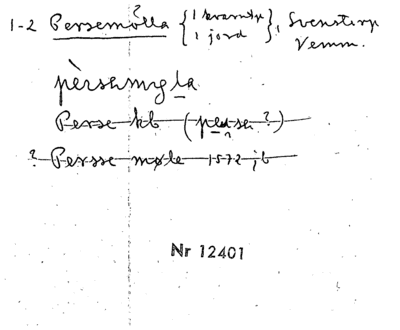 1-2 Persemölla { 1 kvarntp 1 jord }, Svenstorp
Vemm.
pèrsəmyla
Perse kb (plur se?)
? Persse møle 1572 jb
Nr 12401